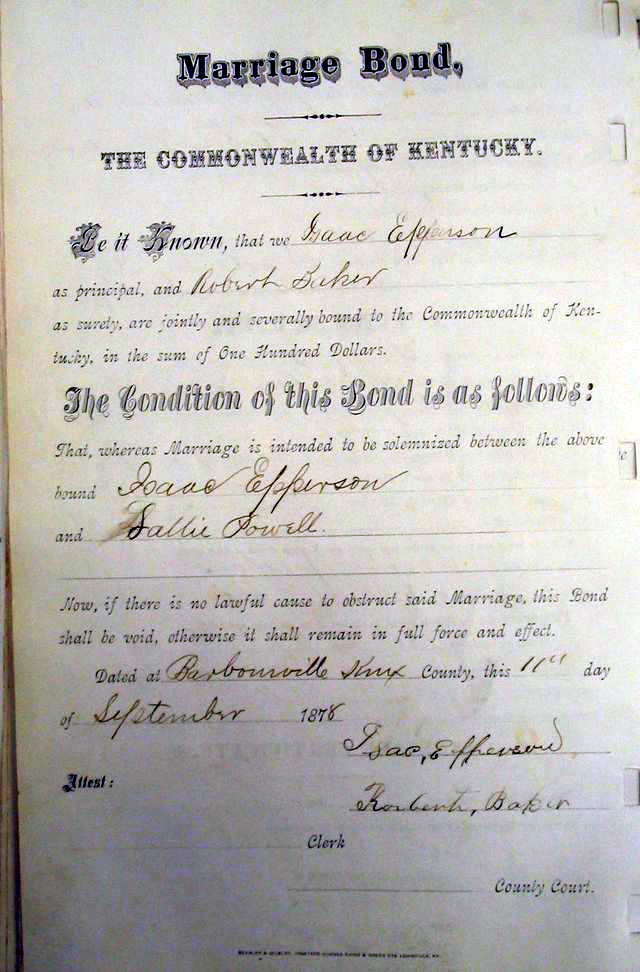 Marriage Bond,
THE COMMONWEALTH OF KENTUCKY.
Be it Known, that we Isaac Epperson
as principal, and Robert Baker
as surety, are jointly and severally bound to the Commonwealth of Ken-
tucky, in the sum of One Hundred Dollars.
The Condition of this Bond is as follows:
That, whereas Marriage is intended to be solemnized between the above
bound Isaac Epperson
and Sallie Powell.
Now, if there is no lawful cause to obstruct said Marriage, this Bond
shall be void, otherwise it shall remain in full force and effect.
Dated at Barbourville Knox County, this 11" day
of September 1878
Isac, Epperson
Attest:
Robert, Baker
Clerk
County Court.